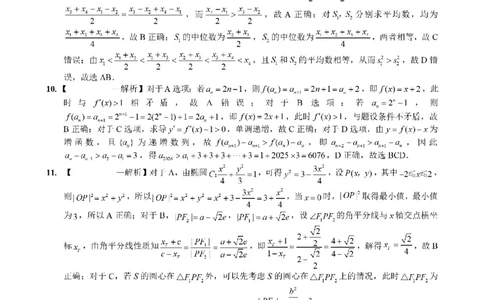 x₃+x₄−x₁−x₂/2 = x₃−x₂+x₄−x₁/2，而 x₄−x₁/2 > x₃−x₂/2，故 A 正确；对 S₁, S₂ 分别求平均数，均为
x₁+x₂+x₃+x₄/4，故 B 正确；S₁ 的中位数为 x₂+x₃/2，S₂ 的中位数为 x₁+x₂+x₃+x₄/4，两者相等，故 C
错误；由 x₁<，且 S₁ 和 S₂ 的平均数相等，从而 s₁²>s₂²，故 D 错
误，故选 AB.
10.【 —解析】对于A选项：若 aₙ=2n−1，则 f(aₙ)=aₙ₊₁=2n+1=aₙ+2，即 f(x)=x+2，此
时 与 f′(x)>1 相 矛 盾 ， 故 A 错 误 ； 对 于 B 选 项 ： 若 aₙ=2ⁿ−1 ， 则
f(aₙ)=aₙ₊₁=2ⁿ⁺¹−1=2(2ⁿ−1)+1=2aₙ+1，即 f(x)=2x+1，此时 f′(x)>1，与题设条件不矛盾，故
B 正确；对于 C 选项，求导 y′=f′(x)−1>0，单调递增，故 C 正确；对于 D 选项，由 y=f(x)−x 为
增 函 数 ， 且 {aₙ} 为 递 增 数 列 ， 故 f(aₙ₊₁)−aₙ₊₁>f(aₙ)−aₙ ， 即 aₙ₊₂−aₙ₊₁>aₙ₊₁−aₙ ， 因 此
aₙ−aₙ₋₁≥a₂−a₁=3，得 a₂₀₂₆≥1+3+3+3+⋯+3=1+2025×3=6076，D 正确，故选 BCD.
11.【 —解析】对于 A，由椭圆 C: x²/4+y²/3=1，可得 y²=3−3x²/4，设 P(x, y)，其中 −2≤x≤2，
则 |OP|²=x²+y²，所以 |OP|²=x²+y²=x²+3−3x²/4=3+x²/4，当 x=0 时，|OP|² 取得最小值，最小值
为 3，所以 A 正确；对于 B，|PF₂|=a−2e，|PF₁|=a+2e，设 ∠F₁PF₂ 的角平分线与 x 轴交点横坐
标 x_T，由角平分线性质知 x_T+c/c−x_T=|PF₁|/|PF₂|=a+2e/a−2e，即 x_T+1/1−x_T=，解得 x_T=2/4，故 B
正确；对于 C，若 S 的圆心在 △F₁PF₂ 外，可以先考虑 S 的圆心在 △F₁PF₂ 上的情况，此时 △F₁PF₂ 为
b²